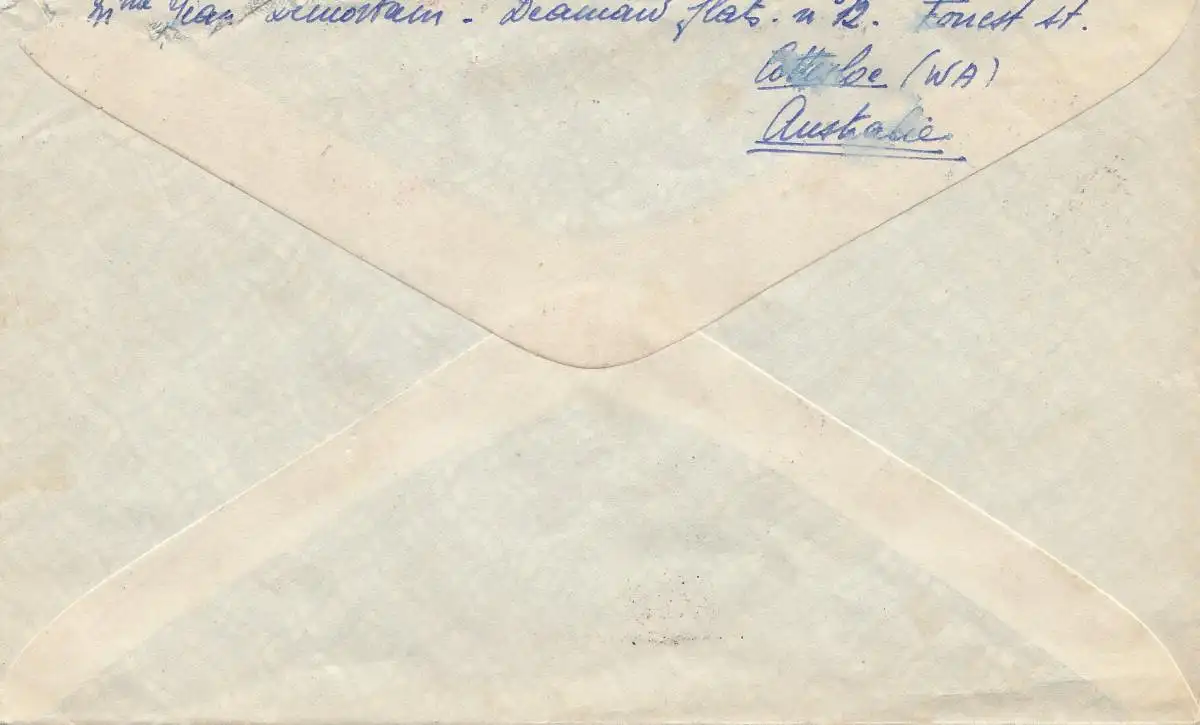 Mme Jean Demortain - Deamaw flats. n° 12. Forrest st.
Cottesloe (WA)
Australie